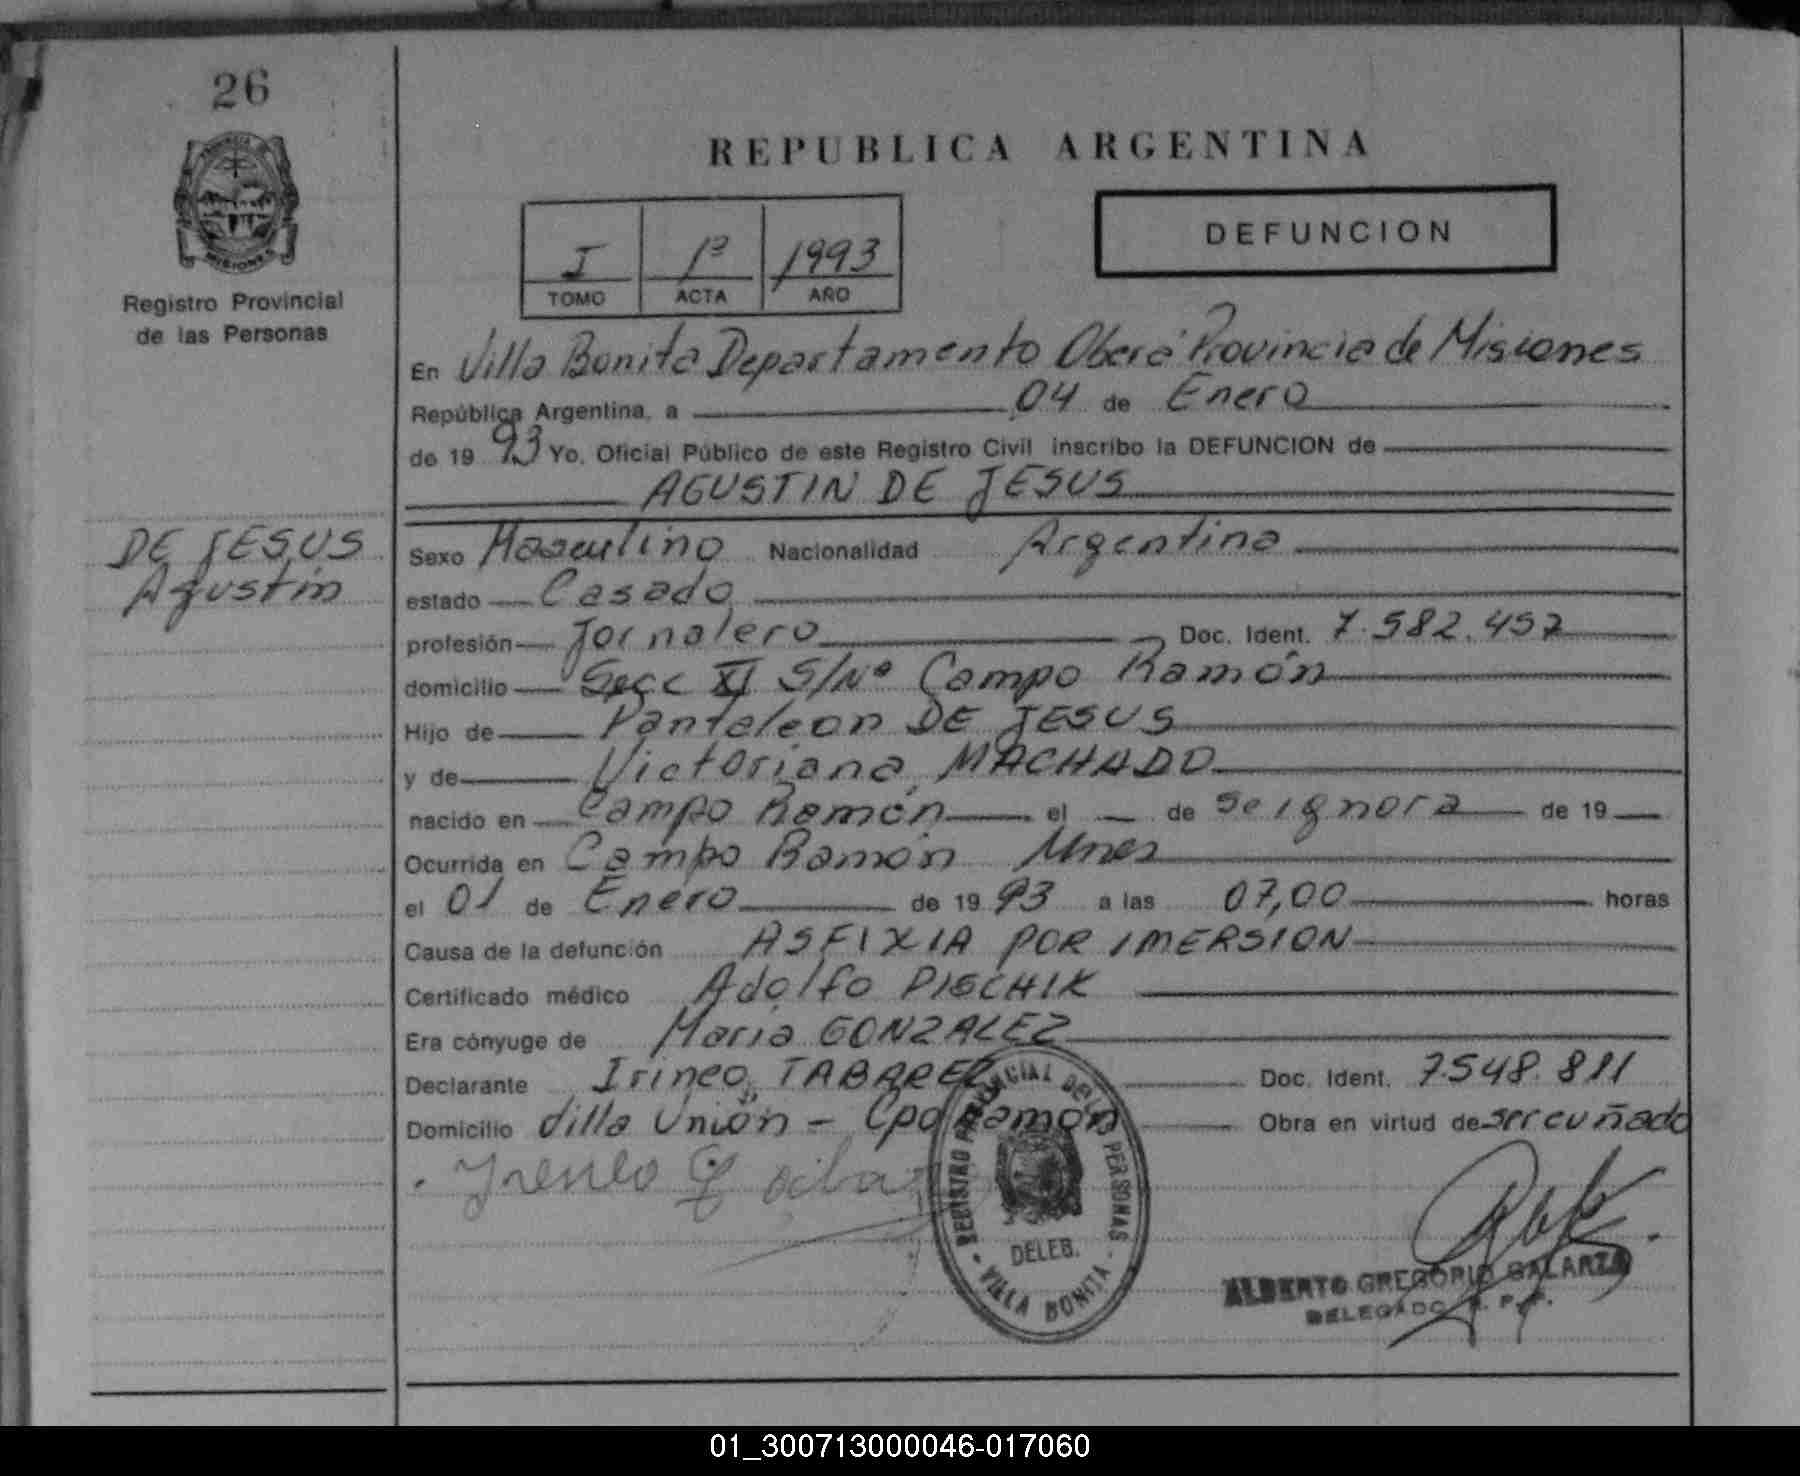 26
PROVINCIA DE
MISIONES
Registro Provincial
de las Personas
REPUBLICA ARGENTINA
I 1ª 1993
TOMO ACTA AÑO
DEFUNCION
En Villa Bonita Departamento Oberá Provincia de Misiones
República Argentina, a 04 de Enero
de 19 93 Yo, Oficial Público de este Registro Civil inscribo la DEFUNCION de
AGUSTIN DE JESUS
DE JESUS
Agustín
Sexo Masculino Nacionalidad Argentina
estado Casado
profesión Jornalero Doc. Ident. 7.582.457
domicilio Secc XI S/Nº Campo Ramón
Hijo de Pantaleon DE JESUS
y de Victoriana MACHADO
nacido en Campo Ramón el — de se ignora de 19 —
Ocurrida en Campo Ramón Mnes
el 01 de Enero de 19 93 a las 07,00 horas
Causa de la defunción ASFIXIA POR IMERSION
Certificado médico Adolfo PISCHIK
Era cónyuge de Maria GONZALEZ
Declarante Irineo TABAREZ Doc. Ident. 7.548.811
Domicilio Villa Unión - Cpo Ramón Obra en virtud de ser cuñado
REGISTRO PROVINCIAL DE LAS PERSONAS
DELEG.
VILLA BONITA
ALBERTO GREGORIO GALARZA
DELEGADO R. P. P.
01_300713000046-017060